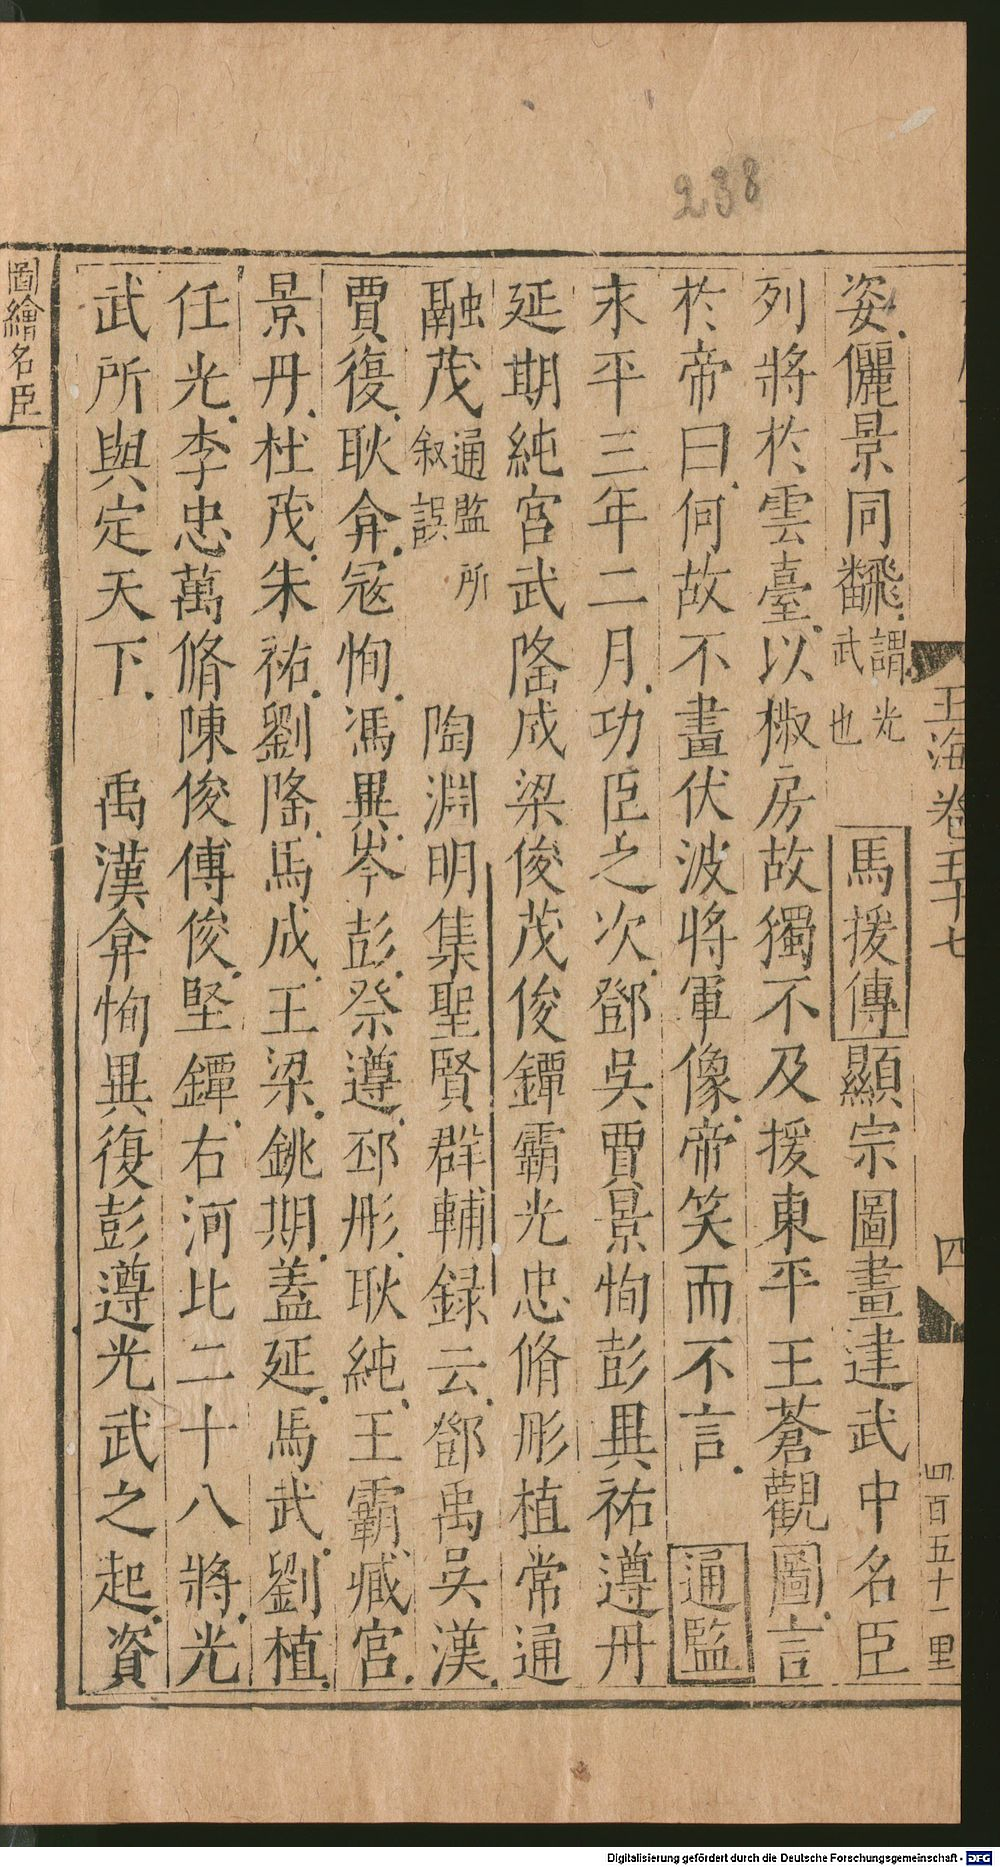 238
姿儷景同飜飛謂光武也 馬援傳顯宗圖畫建武中名臣
列將於雲臺以椒房故獨不及援東平王蒼觀圖言
於帝曰何故不畫伏波將軍像帝笑而不言 通監
永平三年二月功臣之次鄧吳賈景恂彭異祐遵丹
延期純宮武隆成梁俊茂俊鐔霸光忠脩彤植常通
融茂通監所叙誤 陶淵明集聖賢群輔録云鄧禹吳漢
賈復耿弇冦恂馮異岑彭祭遵邳彤耿純王霸臧宮
景丹杜茂朱祐劉隆馬成王梁銚期蓋延馬武劉植
任光李忠萬脩陳俊傅俊堅鐔右河北二十八將光
武所與定天下 禹漢弇恂異復彭遵光武之起資
圖繪名臣
玉海卷五十七
四
四百五十一里
Digitalisierung gefördert durch die Deutsche Forschungsgemeinschaft - DFG